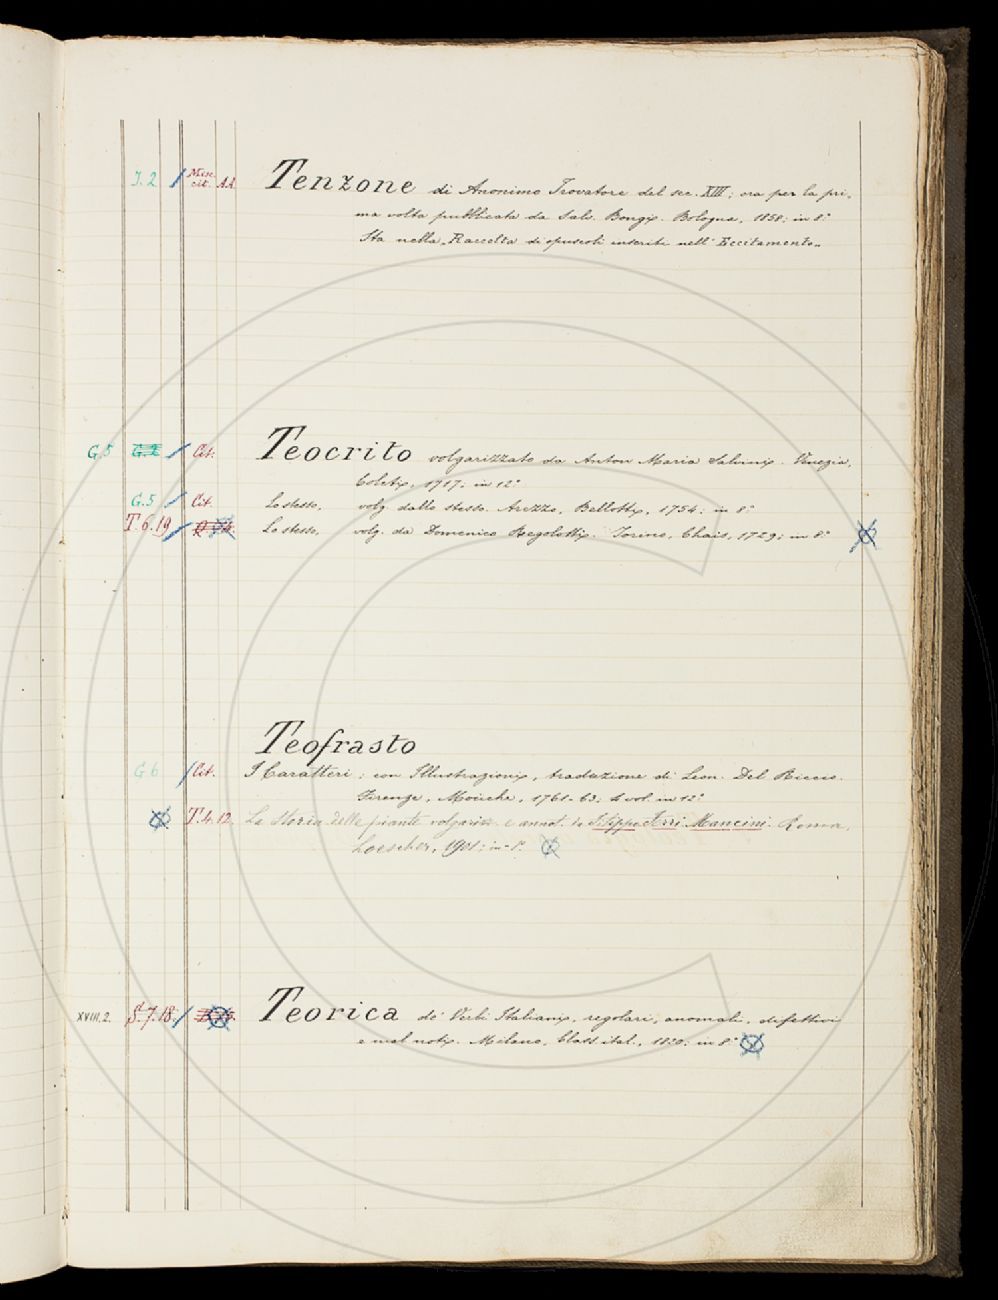 I.2 / Misc. cit. A.A. Tenzone di Anonimo Trovatore del sec. XIII; ora per la pri-
ma volta pubblicata da Salv. Bongi. Bologna, 1858; in 8°
Sta nella „Raccolta di opuscoli inseriti nell' Eccitamento„
G.5 G.2 / Cit. Teocrito volgarizzato da Anton Maria Salvini. Venezia,
Coleti, 1717; in 12°
G.5 / Cit. Lo stesso, volg. dallo stesso. Arezzo, Bellotti, 1754; in 8°
T.6.19 / Lo stesso, volg. da Domenico Regolotti. Torino, Chais, 1729; in 8°
Teofrasto
G 6 / Cit. I Caratteri; con Illustrazioni, traduzione di Leon. Del Riccio.
Firenze, Moücke, 1761-63; 4 vol. in 12°
T.4.12. La Storia delle piante volgarizz. e annot. da Filippo Ferri Mancini. Roma,
Loescher, 1901; in-8°
XVIII.2. S.7.18. / Teorica de' Verbi Italiani, regolari, anomali, difettivi
e mal noti. Milano, Class. ital., 1820; in 8°